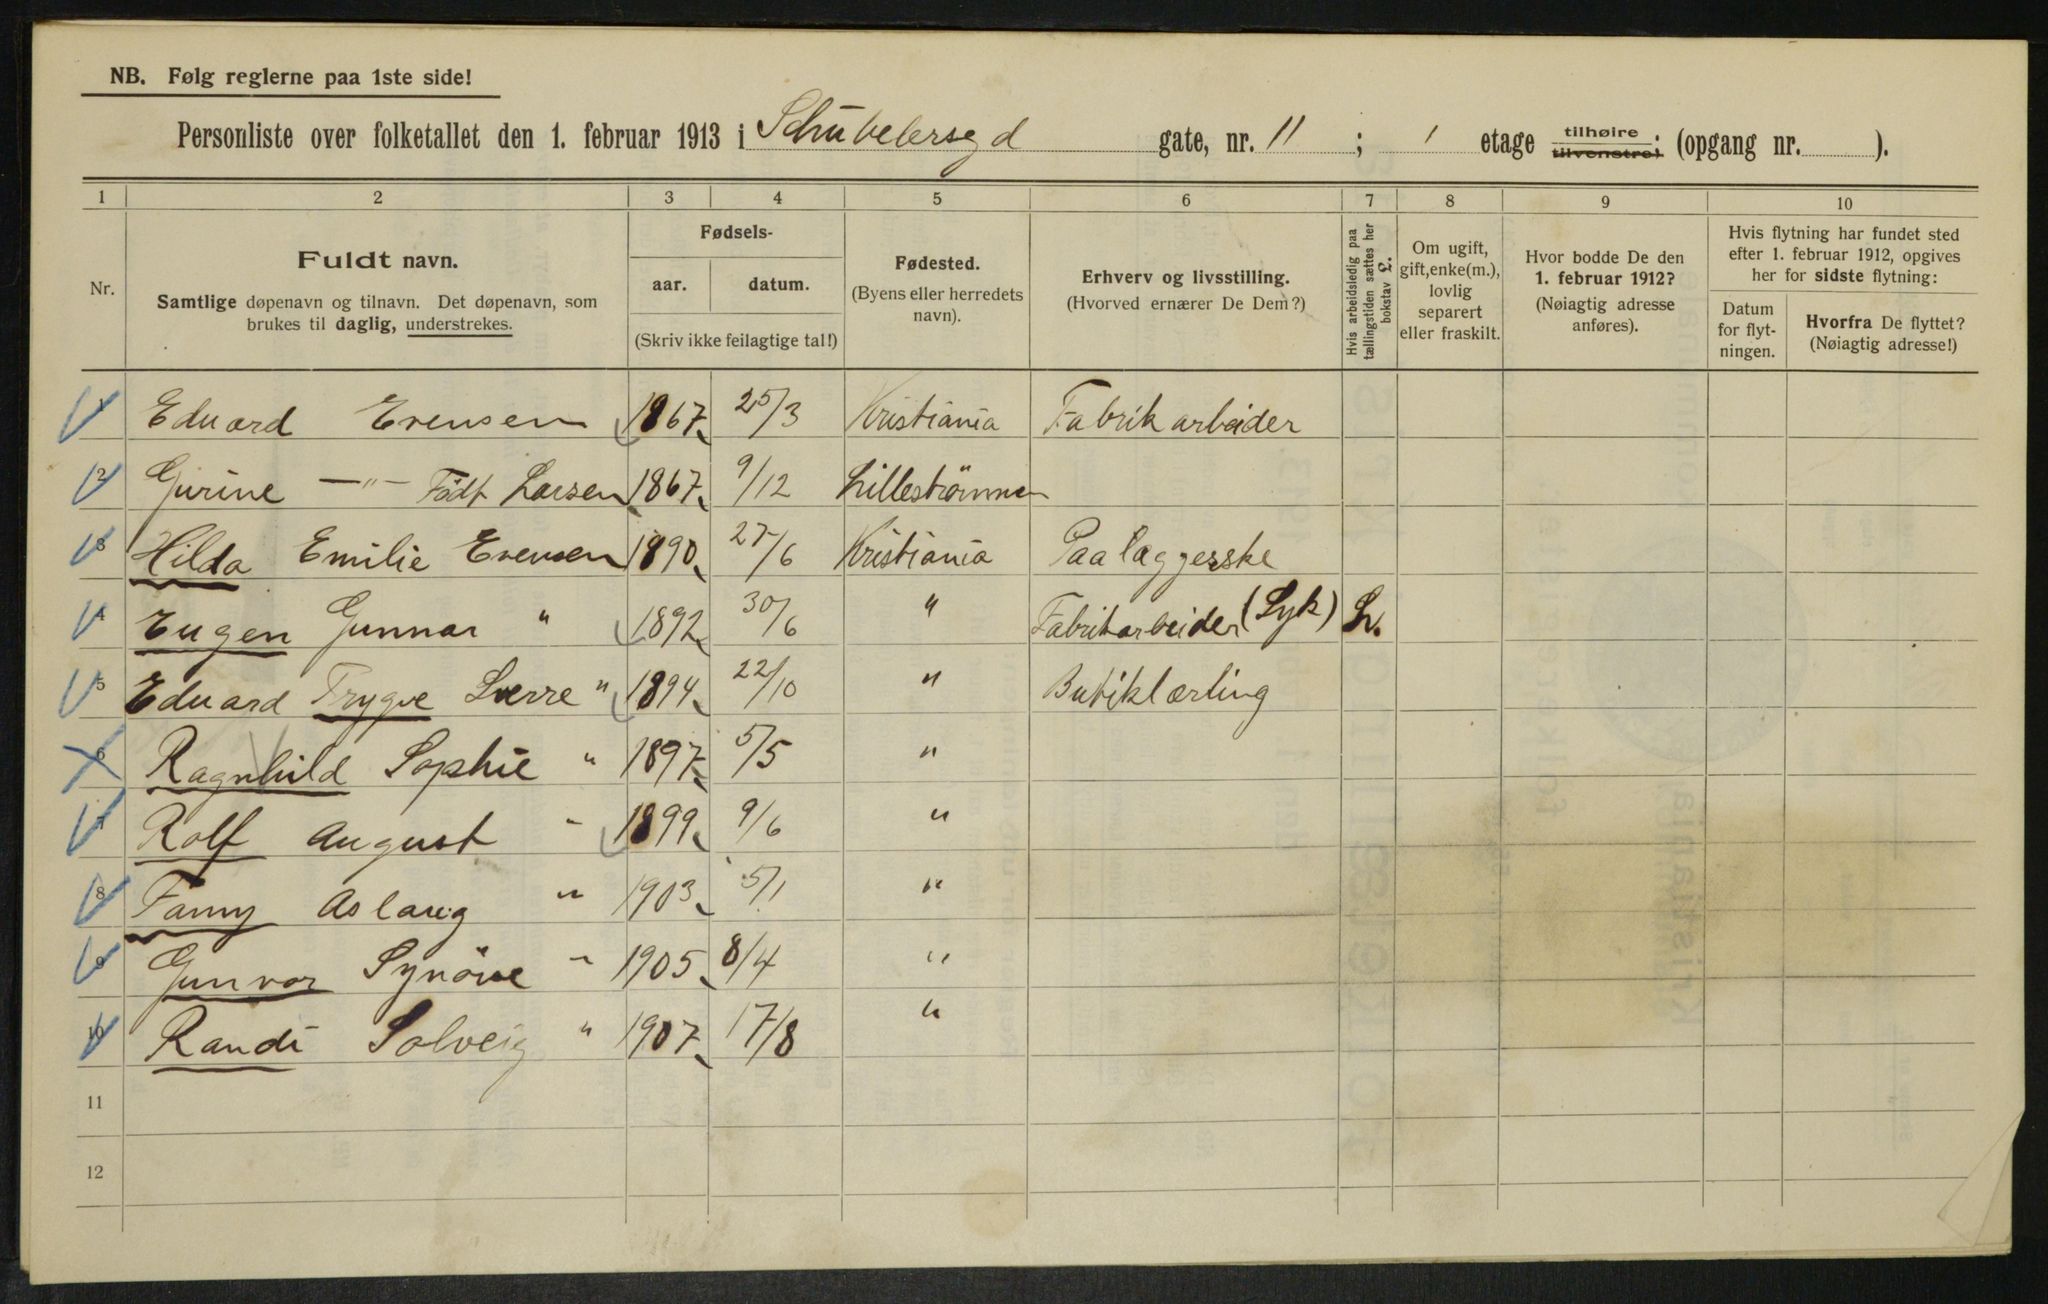 NB. Følg reglerne paa 1ste side!
Personliste over folketallet den 1. februar 1913 i Schübelersgd gate, nr. 11 ; 1 etage tilhøire tilvenstre; (opgang nr. ).
1 2 3 4 5 6 7 8 9 10
Nr.
Fuldt navn.
Samtlige døpenavn og tilnavn. Det døpenavn, som
brukes til daglig, understrekes.
Fødsels-
aar. datum.
(Skriv ikke feilagtige tal!)
Fødested.
(Byens eller herredets
navn).
Erhverv og livsstilling.
(Hvorved ernærer De Dem?)
Hvis arbeidsledig paa
tællingstiden sættes her
bokstav L.
Om ugift,
gift, enke(m.),
lovlig
separert
eller fraskilt.
Hvor bodde De den
1. februar 1912?
(Nøiagtig adresse
anføres).
Hvis flytning har fundet sted
efter 1. februar 1912, opgives
her for sidste flytning:
Datum
for flyt-
ningen.
Hvorfra De flyttet?
(Nøiagtig adresse!)
1 Eduard Evensen 1867 25/3 Kristiania Fabrikarbeider
2 Gurine —"— Födt Larsen 1867 9/12 Lilleströmmen
3 Hilda Emilie Evensen 1890 27/6 Kristiania Paalæggerske
4 Eugen Gunnar " 1892 30/6 " Fabrikarbeider (Syk) L.
5 Eduard Trygve Sverre " 1894 22/10 " Butiklærling
6 Ragnhild Sophie " 1897 5/5 "
7 Rolf August " 1899 9/6 "
8 Fanny Aslaug " 1903 5/1 "
9 Gunvor Synöve " 1905 8/4 "
10 Randi Solveig " 1907 17/8 "
11
12